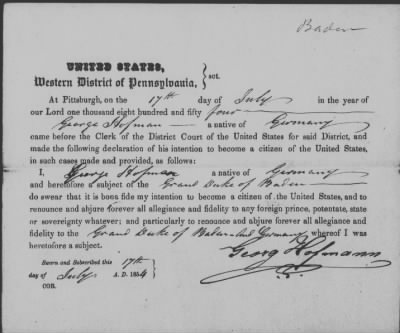 Baden
UNITED STATES,
Western District of Pennsylvania, } sct.
At Pittsburgh, on the 17th day of July in the year of
our Lord one thousand eight hundred and fifty four
George Hofman a native of Germany
came before the Clerk of the District Court of the United States for said District, and
made the following declaration of his intention to become a citizen of the United States,
in such cases made and provided, as follows:
I, George Hofman a native of Germany
and heretofore a subject of the Grand Duke of Baden
do swear that it is bona fide my intention to become a citizen of the United States, and to
renounce and abjure forever all allegiance and fidelity to any foreign prince, potentate, state
or sovereignty whatever; and particularly to renounce and abjure forever all allegiance and
fidelity to the Grand Duke of Baden and Germany whereof I was
heretofore a subject.
Georg Hofmann
Sworn and Subscribed this 17th
day of July A. D. 1854
COR.